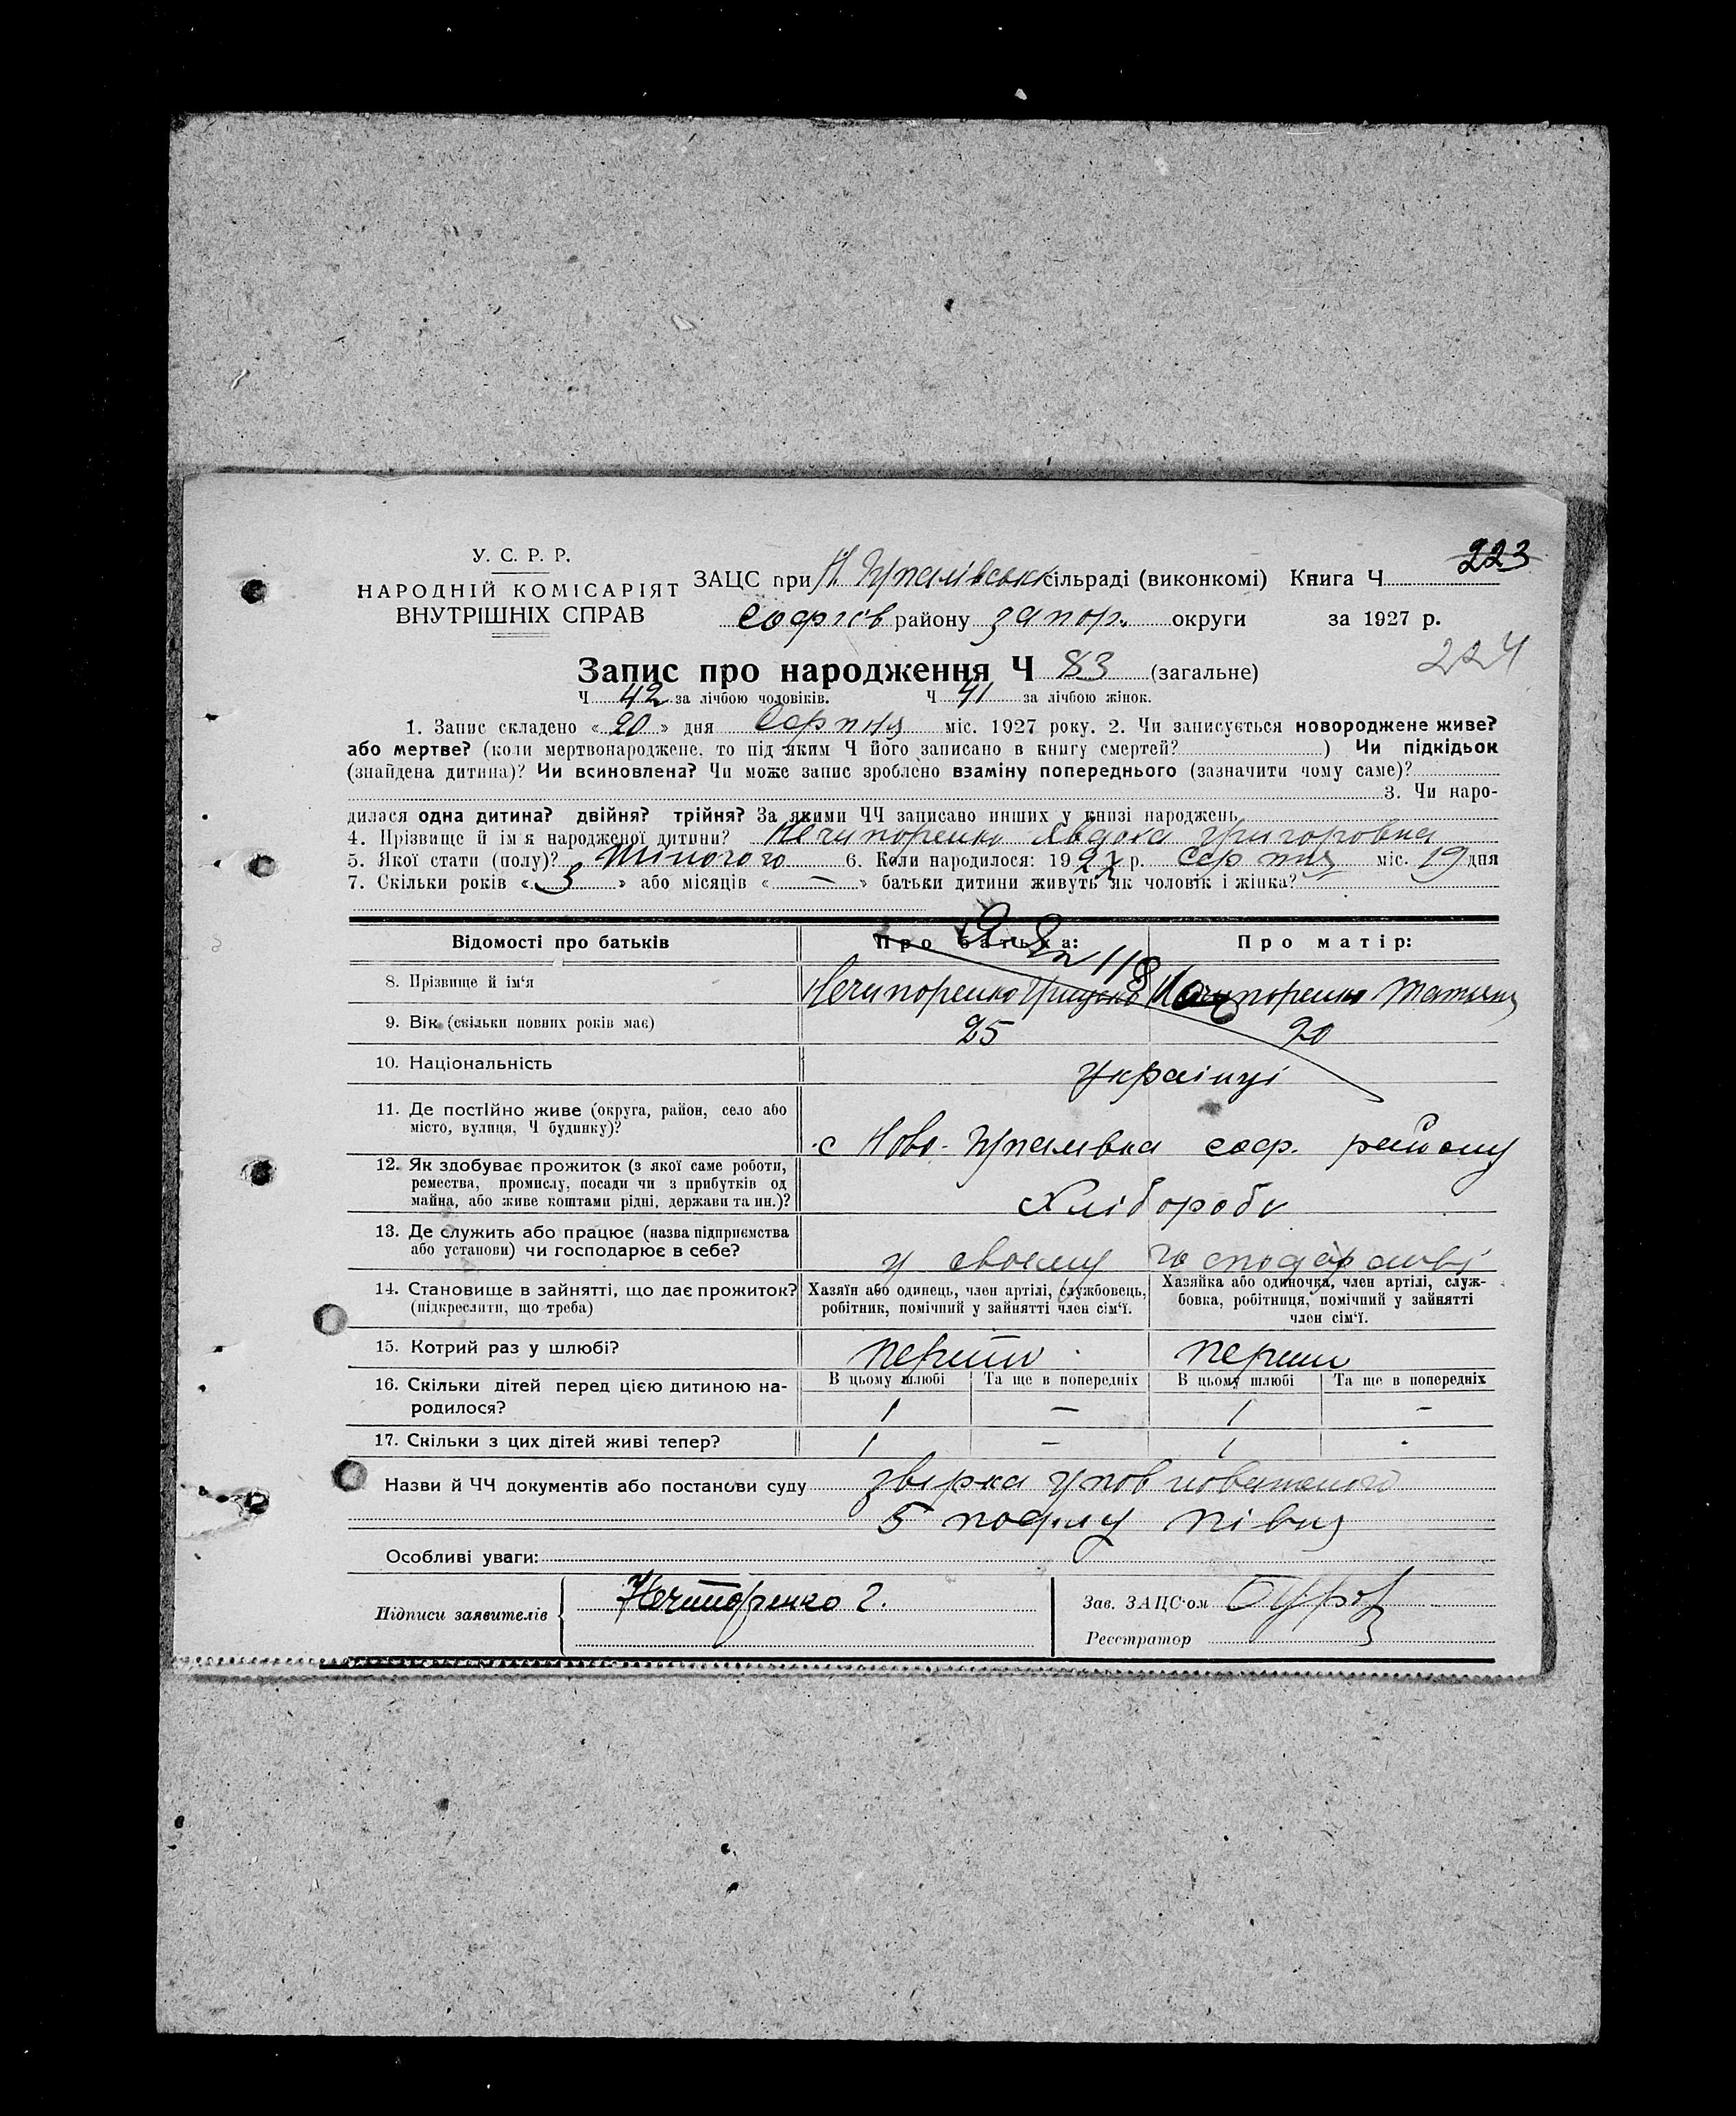 223
У. С. Р. Р.
НАРОДНІЙ КОМІСАРІЯТ
ВНУТРІШНІХ СПРАВ
ЗАЦС при Н. сільраді (виконкомі) Книга Ч
Софіів району запор. округи за 1927 р.
224
Запис про народження Ч 83 (загальне)
Ч 42 за лічбою чоловіків. Ч 41 за лічбою жінок.
1. Запис складено « 20 » дня Серпня міс. 1927 року. 2. Чи записується новороджене живе?
або мертве? (коли мертвонароджене, то під яким Ч його записано в книгу смертей? ) Чи підкідьок
(знайдена дитина)? Чи всиновлена? Чи може запис зроблено взаміну попереднього (зазначити чому саме)?
3. Чи наро-
дилася одна дитина? двійня? трійня? За якими ЧЧ записано инших у книзі народжень
4. Прізвище й ім'я народженої дитини? Нечипоренко Явдоха Григоровна
5. Якої стати (полу)? жіночого 6. Коли народилося: 1927 р. Серпня міс. 19 дня
7. Скільки років « 3 » або місяців « — » батьки дитини живуть як чоловік і жінка?
Відомості про батьків
Про батька:
Про матір:
118
8. Прізвище й ім'я
Нечипоренко Грицько
Нечипоренко Татяна
9. Вік (скільки повних років має)
25
20
10. Національність
Українці
11. Де постійно живе (округа, район, село або
місто, вулиця, Ч будинку)?
с Ново- соф. району
12. Як здобуває прожиток (з якої саме роботи,
ремества, промислу, посади чи з прибутків од
майна, або живе коштами рідні, держави та ин.)?
Хлібороби
13. Де служить або працює (назва підприємства
або установи) чи господарює в себе?
у своему господарстві
14. Становище в зайнятті, що дає прожиток?
(підкреслити, що треба)
Хазяїн або одинець, член артілі, службовець,
робітник, помічний у зайнятті член сім'ї.
Хазяйка або одиночка, член артілі, служ-
бовка, робітниця, помічний у зайнятті
член сім'ї.
15. Котрий раз у шлюбі?
перший
перший
16. Скільки дітей перед цією дитиною на-
родилося?
В цьому шлюбі
Та ще в попередніх
В цьому шлюбі
Та ще в попередніх
1 — 1 -
17. Скільки з цих дітей живі тепер?
1 — 1 -
Назви й ЧЧ документів або постанови суду звірка уповноваженого
5
Особливі уваги:
Підписи заявителів
Нечипоренко Г.
Зав. ЗАЦС'ом
Реєстратор